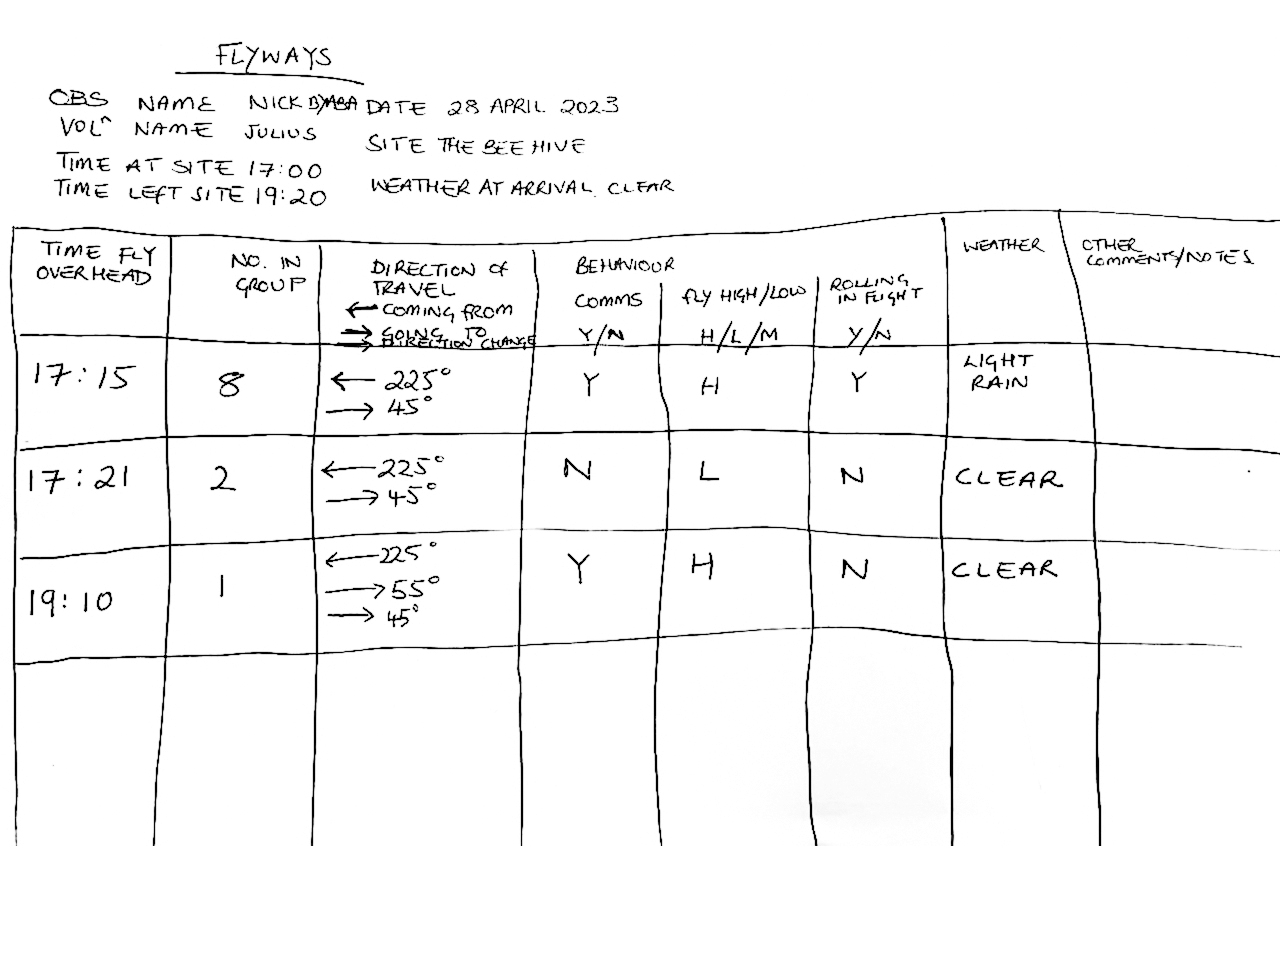 FLYWAYS
OBS NAME NICK BYABA DATE 28 APRIL 2023
VOL^ NAME JULIUS
SITE THE BEEHIVE
TIME AT SITE 17:00
TIME LEFT SITE 19:20
WEATHER AT ARRIVAL CLEAR
TIME FLY OVERHEAD
NO. IN GROUP
DIRECTION OF TRAVEL
← COMING FROM
→ GOING TO
→ DIRECTION CHANGE
BEHAVIOUR
COMMS Y/N
FLY HIGH/LOW H/L/M
ROLLING IN FLIGHT Y/N
WEATHER
OTHER COMMENTS/NOTES
17:15 8 ← 225° → 45° Y H Y LIGHT RAIN
17:21 2 ← 225° → 45° N L N CLEAR
19:10 1 ← 225° → 55° → 45° Y H N CLEAR